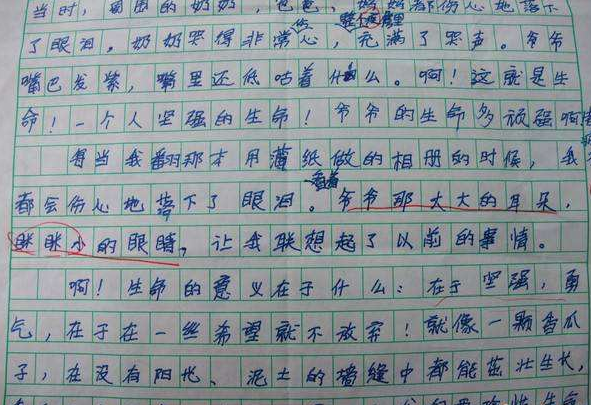 当时,周围的奶奶,爸爸,妈妈都伤心地落下
了眼泪。奶奶哭得非常伤心,整个房里充满了哭声。爷爷
嘴巴发紫,嘴里还低咕着什么。啊!这就是生
命!一个人坚强的生命!爷爷的生命多顽强啊
每当我翻那本用薄纸做的相册的时候,我
都会伤心地落下了眼泪。看着爷爷那大大的耳朵,
眯眯小的眼睛,让我联想起了以前的事情。
啊!生命的意义在于什么:在于坚强,勇
气,在于在一丝希望就不放弃!就像一颗香瓜
子,在没有阳光、泥土的墙缝中都能茁壮生长,